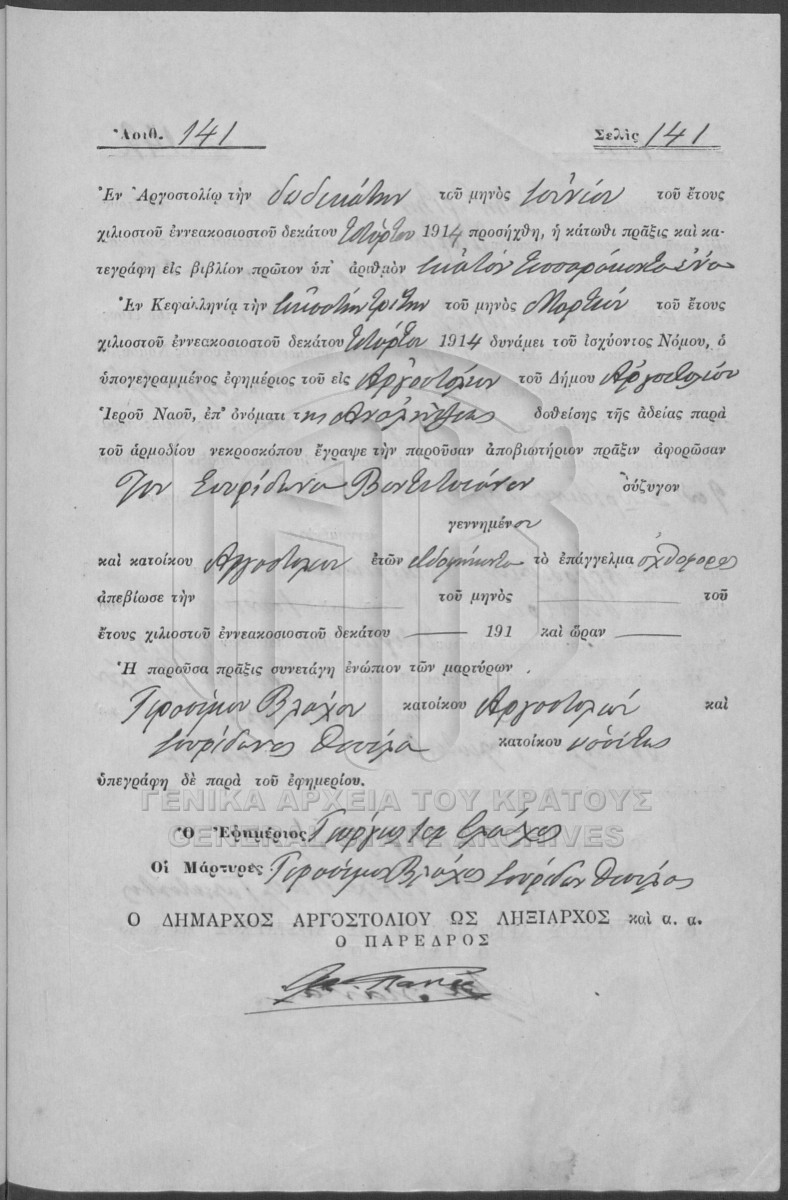 Ἀριθ. 141 Σελὶς 141
Ἐν Ἀργοστολίῳ τὴν δωδεκάτην τοῦ μηνὸς Ἰουνίου τοῦ ἔτους
χιλιοστοῦ ἐννεακοσιοστοῦ δεκάτου τετάρτου 1914 προσήχθη, ἡ κάτωθι πρᾶξις καὶ κα-
τεγράφη εἰς βιβλίον πρῶτον ὑπ' ἀριθμὸν ἑκατὸν τεσσαράκοντα ἕνα
Ἐν Κεφαλληνίᾳ τὴν εἰκοστὴν τρίτην τοῦ μηνὸς Μαρτίου τοῦ ἔτους
χιλιοστοῦ ἐννεακοσιοστοῦ δεκάτου τετάρτου 1914 δυνάμει τοῦ ἰσχύοντος Νόμου, ὁ
ὑπογεγραμμένος ἐφημέριος τοῦ εἰς Ἀργοστόλιον τοῦ Δήμου Ἀργοστολίου
Ἱεροῦ Ναοῦ, ἐπ' ὀνόματι της Αναλήψεως δοθείσης τῆς ἀδείας παρὰ
τοῦ ἁρμοδίου νεκροσκόπου ἔγραψε τὴν παροῦσαν ἀποβιωτήριον πρᾶξιν ἀφορῶσαν
Τον Σπυρίδωνα σύζυγον
γεννημένου
καὶ κατοίκου Αργοστολίου ἐτῶν εβδομήκοντα τὸ ἐπάγγελμα αχθοφόρος
ἀπεβίωσε τὴν τοῦ μηνὸς τοῦ
ἔτους χιλιοστοῦ ἐννεακοσιοστοῦ δεκάτου 191 καὶ ὥραν
Ἡ παροῦσα πρᾶξις συνετάγη ἐνώπιον τῶν μαρτύρων
Γερασίμου Βλάχου κατοίκου Αργοστολίου καὶ
Σπυρίδωνος κατοίκου
ὑπεγράφη δὲ παρὰ τοῦ ἐφημερίου.
ΓΕΝΙΚΑ ΑΡΧΕΙΑ ΤΟΥ ΚΡΑΤΟΥΣ
Ὁ Ἐφημέριος Γεώργιος
GENERAL STATE ARCHIVES
Οἱ Μάρτυρες Γεράσιμος Βλάχος Σπυρίδων
Ο ΔΗΜΑΡΧΟΣ ΑΡΓΟΣΤΟΛΙΟΥ ΩΣ ΛΗΞΙΑΡΧΟΣ καὶ α. α.
Ο ΠΑΡΕΔΡΟΣ